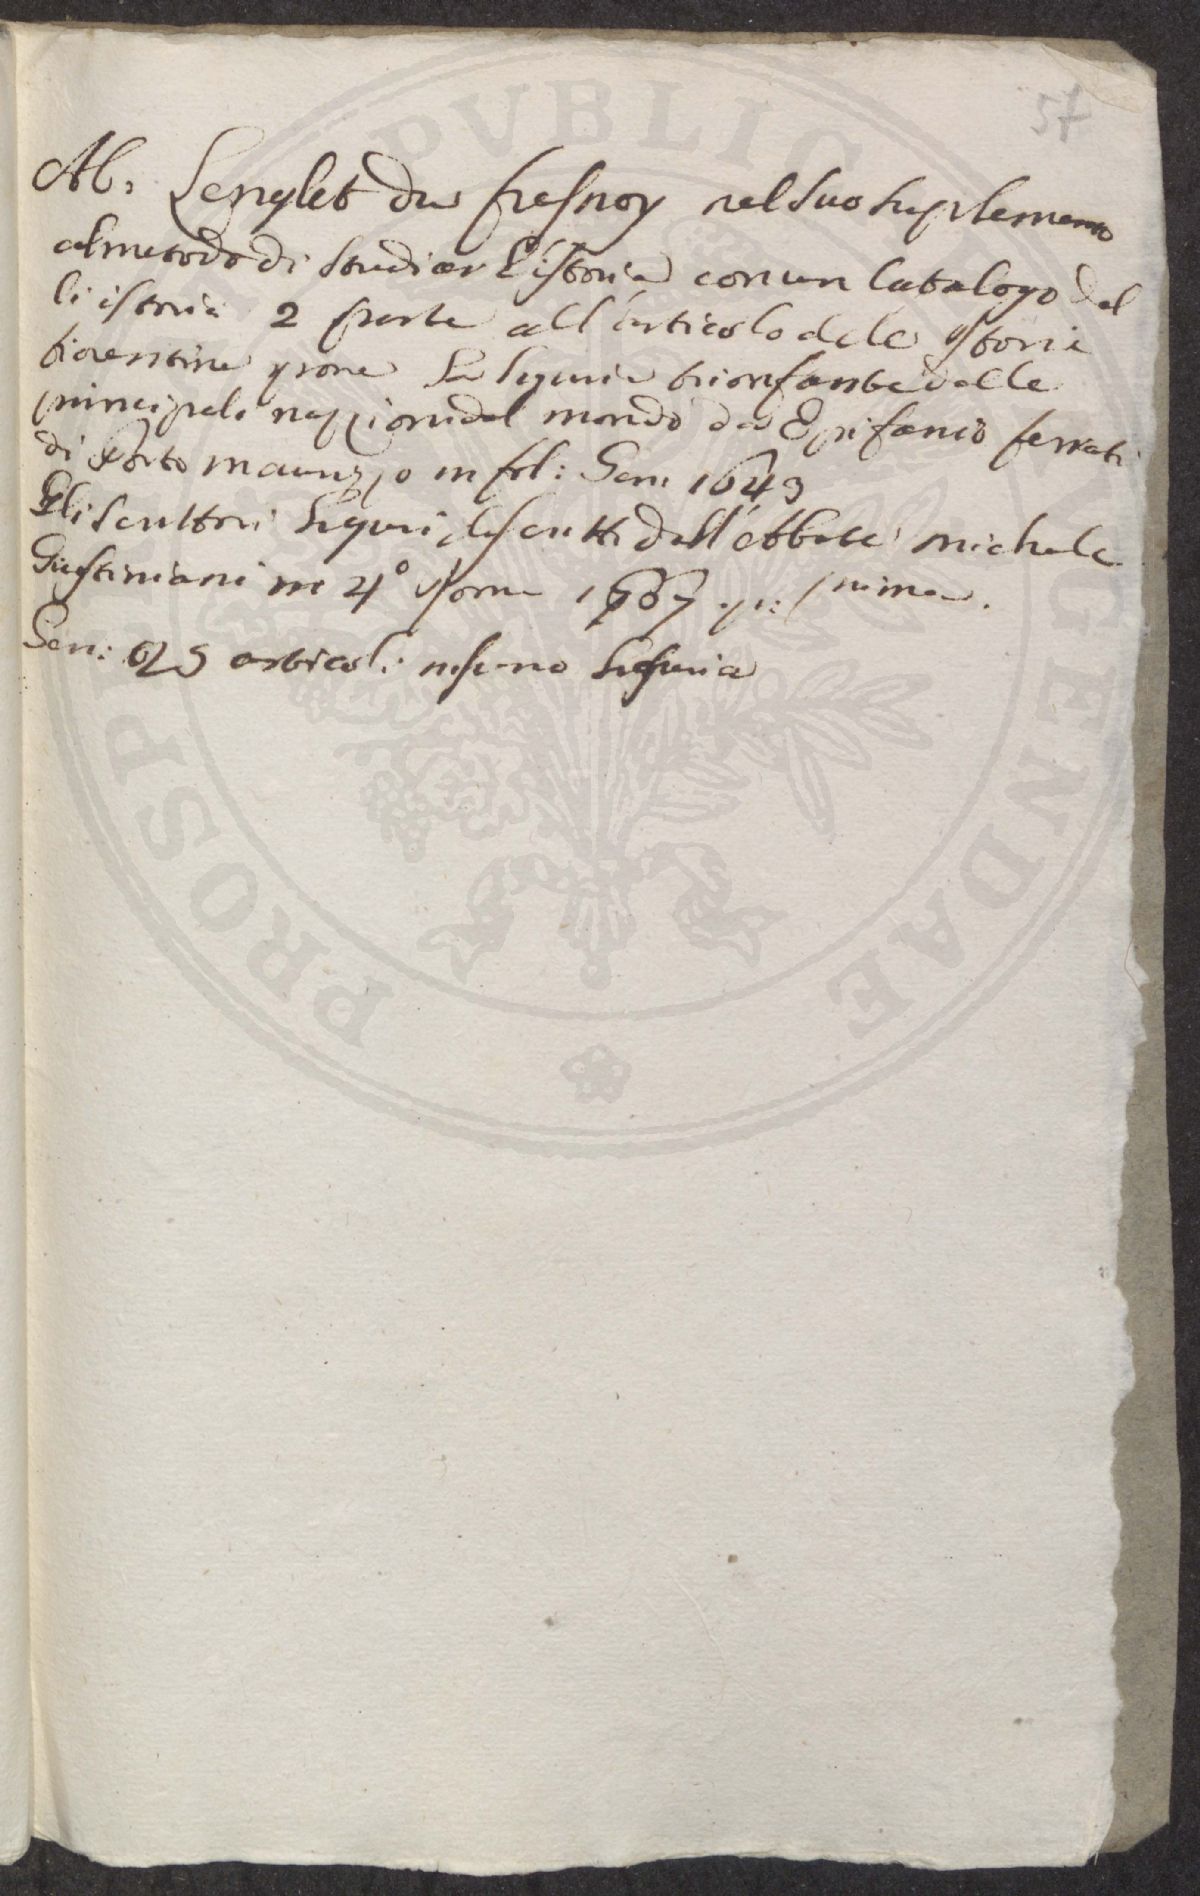 57
Ab. Lenglet du fresnoy nel suo suplemento
al metodo di studiar l'istoria con un Catalogo del
li istorici 2 parte all'articolo dele Istorie
fiorentine pone La liguria trionfante delle
principali nazzioni del mondo da Epifanio ferrari
di Porto maurizzo in fol: Gen: 1643
Gli scrittori liguri descritti dall'abbate michele
Giustiniani in 4° Roma 1667 p: prima.
Gen: articoli nisuno liguria
PUBLIC
PROSPI
GENDAE